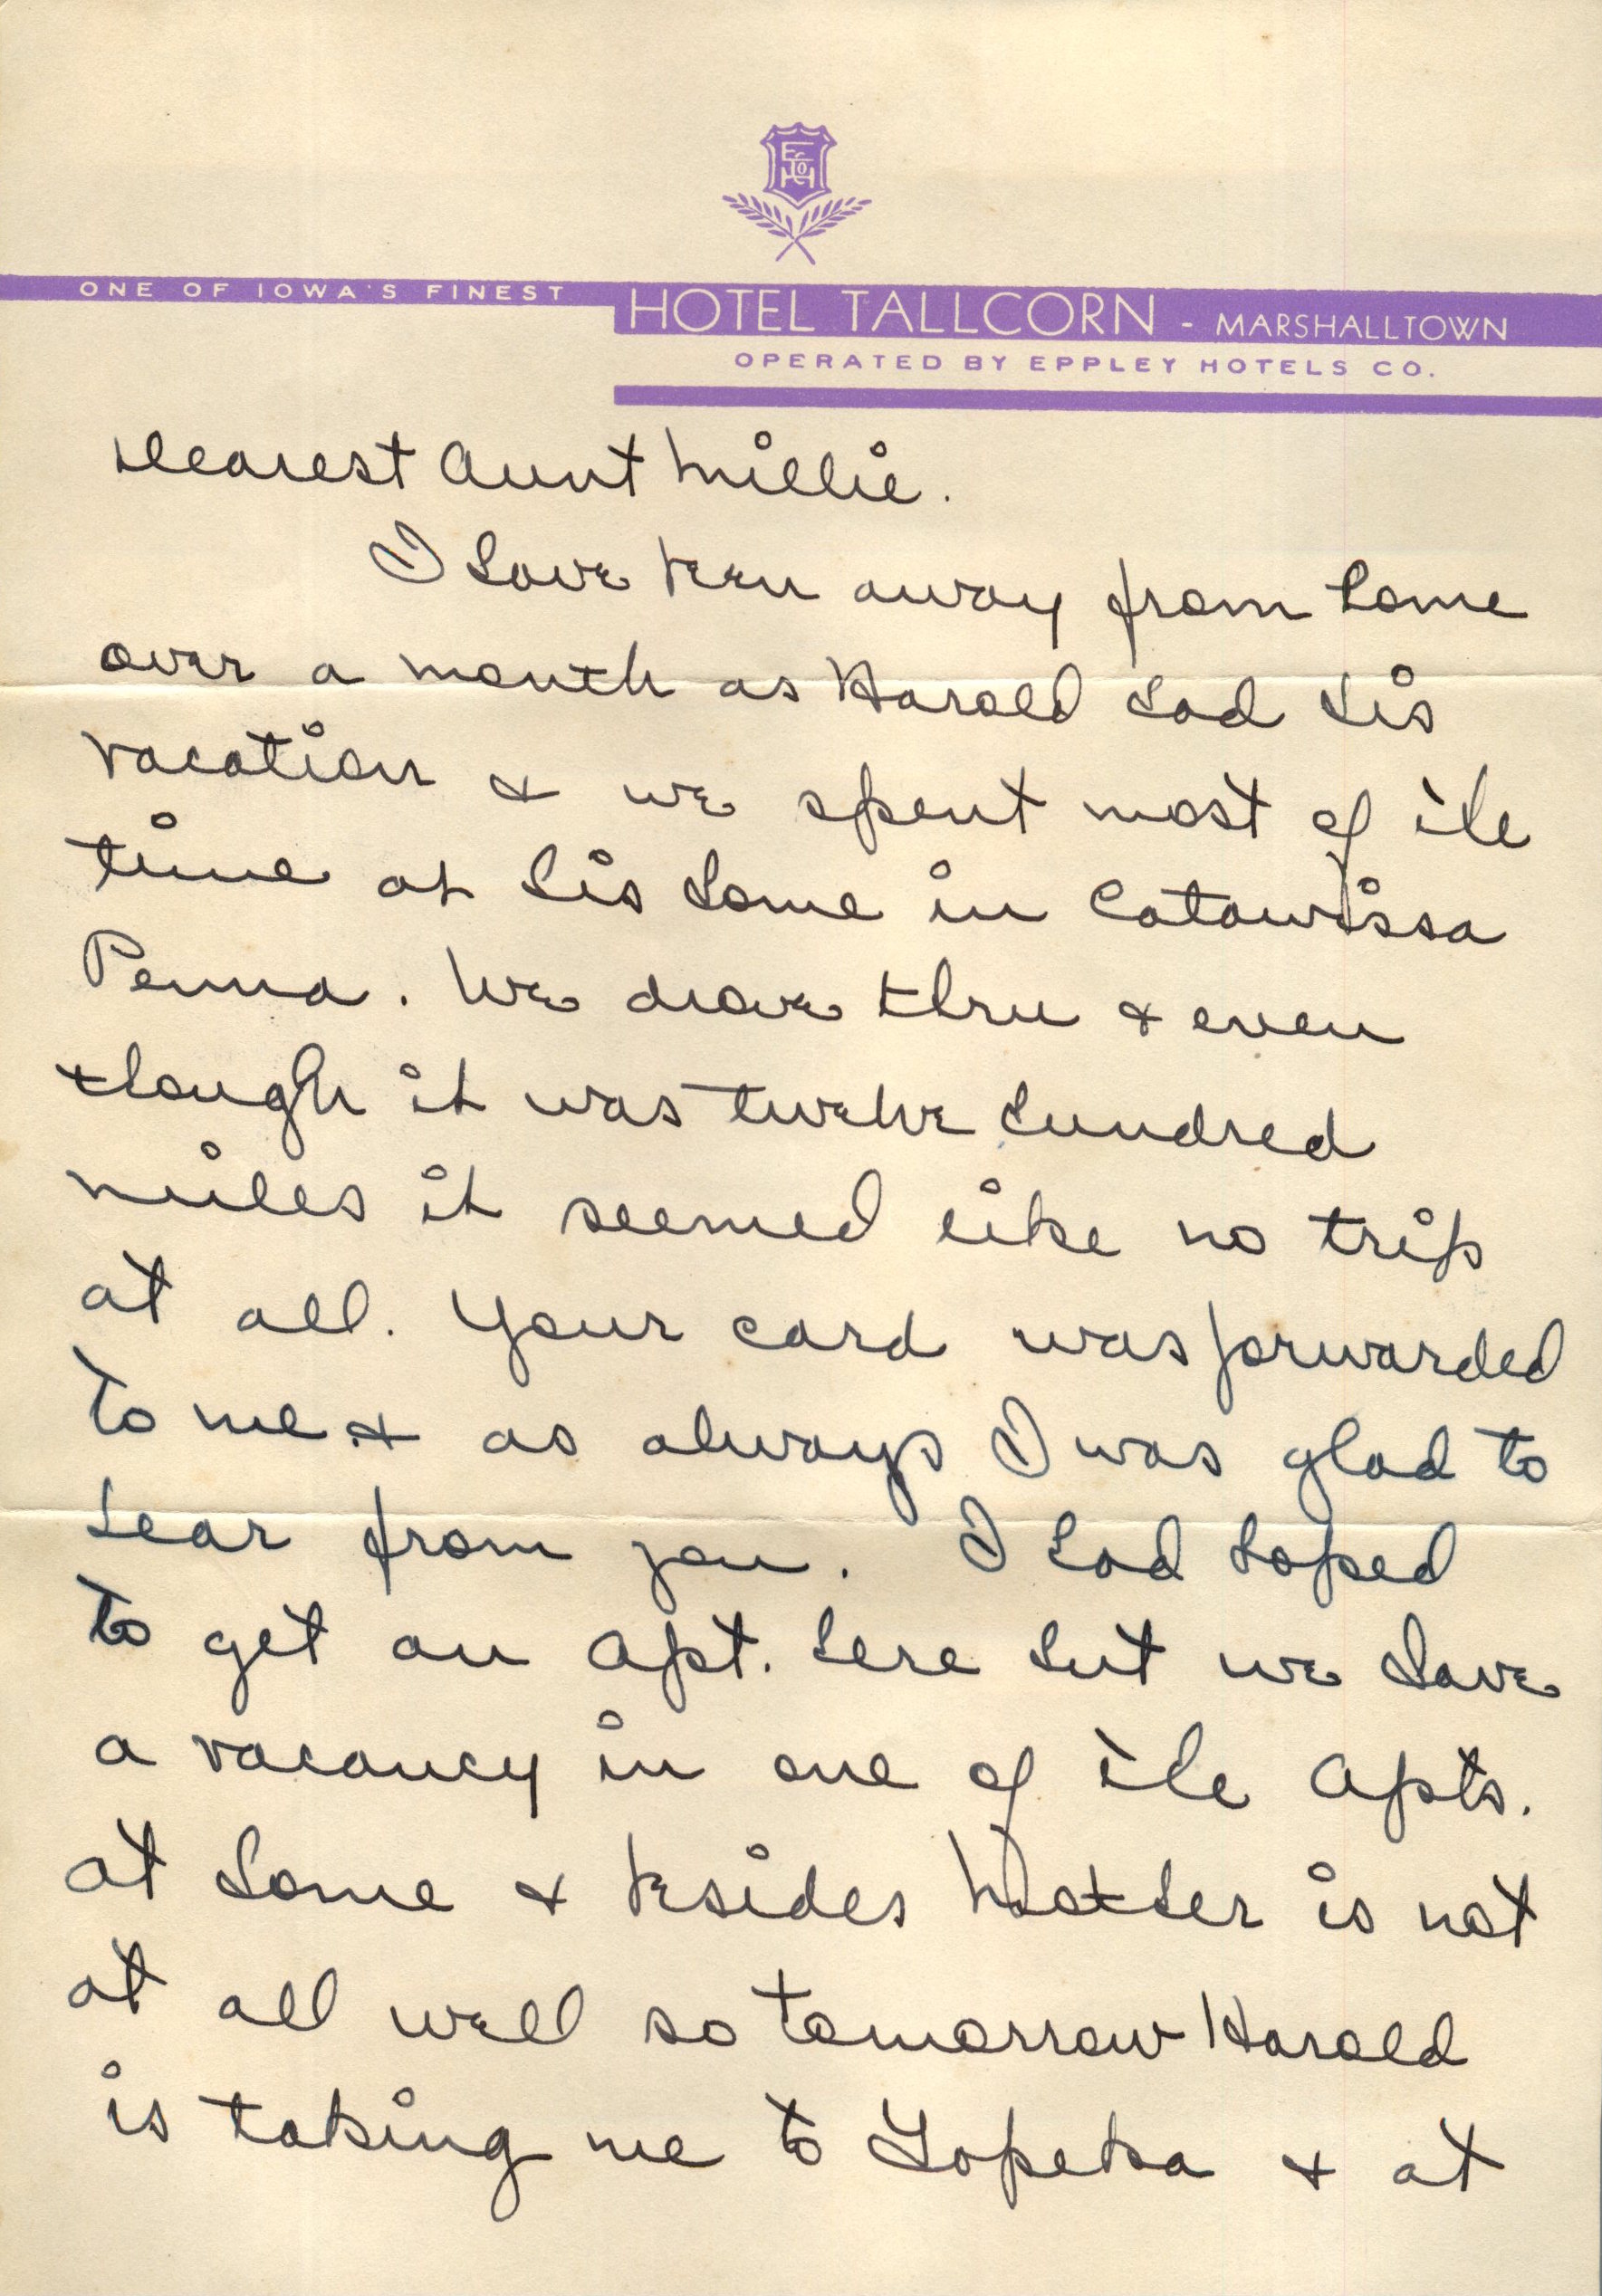 E Co H
ONE OF IOWA'S FINEST
HOTEL TALLCORN - MARSHALLTOWN
OPERATED BY EPPLEY HOTELS CO.
Dearest Aunt Millie.
I have been away from home
over a month as Harold had his
vacation & we spent most of the
time at his home in Catawissa
Penna. We drove thru & even
though it was twelve hundred
miles it seemed like no trip
at all. Your card was forwarded
to me & as always I was glad to
hear from you. I had hoped
to get an apt. here but we have
a vacancy in one of the apts.
at home & besides Mother is not
at all well so tomorrow Harold
is taking me to Topeka & at